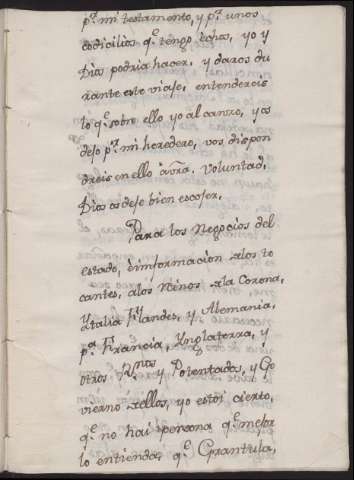 pr. mi testamento, y pr. unos
codicilios qe. tengo echos, yo y
Dios podria hacer, y daros du
rante este viaje, entendereis
lo qe. sobre ello yo alcanzo, y os
dejo pr. mi heredero, vos dispon
dreis en ello á vra. voluntad,
Dios os deje bien escojer.
Para los Negocios del
estado, é informacion de los to
cantes, a los Reinos de la Corona,
Ytalia Flandes, y Alemania,
pa. Francia, Ynglaterra, y
otros Rnos. y Potentados, y Go
vierno de ellos, yo estoi cierto,
qe. no hai persona qe. mejor
lo entienda, qe. Grantula,